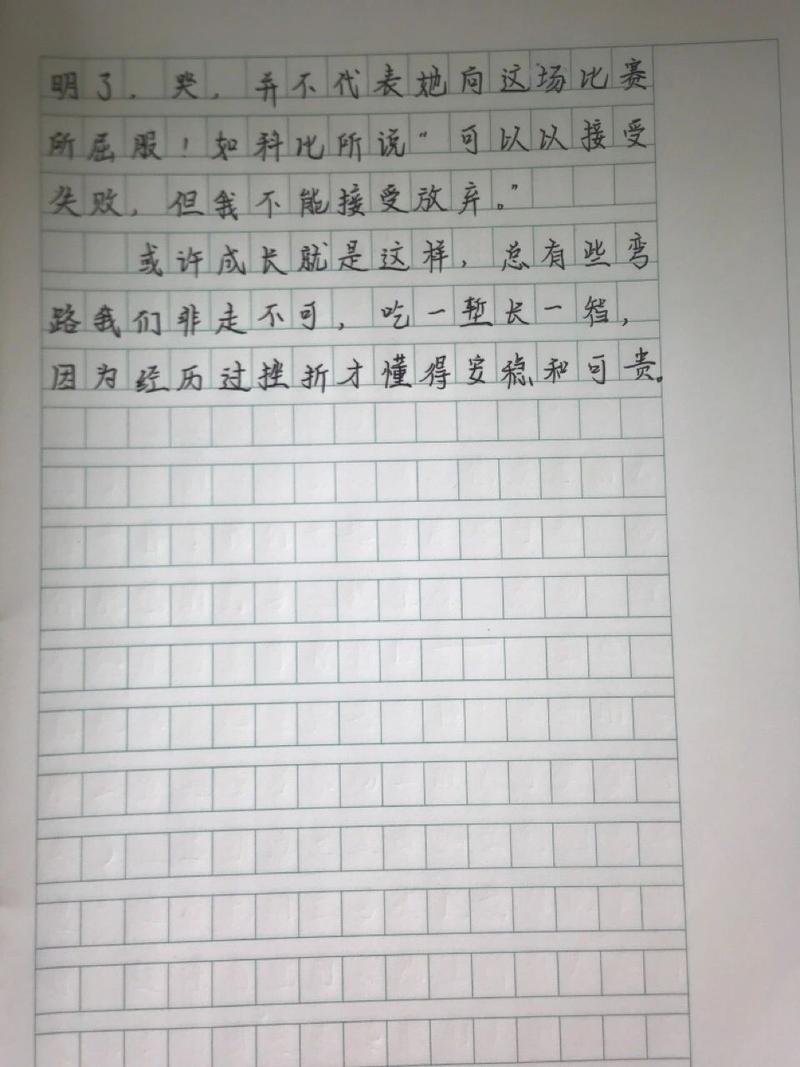 明了，哭，弃不代表她向这场比赛
所屈服！如科比所说“可以以接受
失败，但我不能接受放弃。”
或许成长就是这样，总有些弯
路我们非走不可，吃一堑长一智，
因为经历过挫折才懂得安稳和可贵。